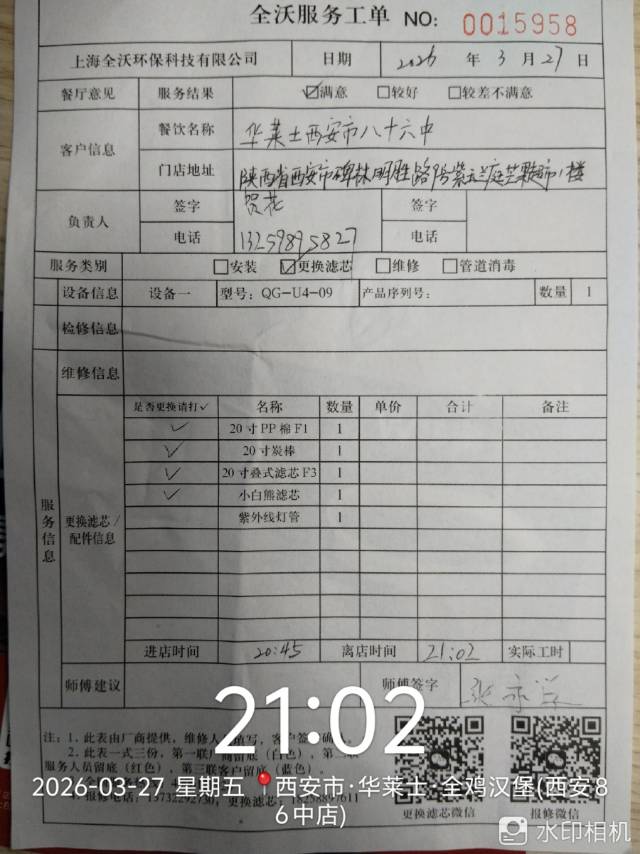 全沃服务工单 NO: 0015958
上海全沃环保科技有限公司 日期 2026 年 3 月 27 日
餐厅意见 服务结果 ☑满意 □较好 □较差不满意
客户信息 餐饮名称 华莱士西安市八十六中
门店地址 陕西省西安市碑林
负责人 签字 贺花 签字
电话 13259895827 电话
服务类别 □安装 ☑更换滤芯 □维修 □管道消毒
设备信息 设备一 型号: QG-U4-09 产品序列号: 数量 1
检修信息
维修信息
服务信息
更换滤芯/配件信息
是否更换请打✓ 名称 数量 单价 合计 备注
✓ 20寸PP棉F1 1
✓ 20寸炭棒 1
✓ 20寸叠式滤芯F3 1
✓ 小白熊滤芯 1
紫外线灯管 1
进店时间 20:45 离店时间 21:02 实际工时
师傅建议 师傅签字
21:02
注: 1、此表由厂商提供，维修人
2、此表一式三份，第一联厂商留底（白色），
服务人员留底（红色），第三联客户留底（蓝色），
2026-03-27 星期五 西安市·华莱士·全鸡汉堡(西安86中店)
更换滤芯微信 报修微信
水印相机